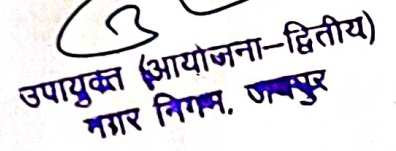 उपायुक्त (आयोजना-द्वितीय)
नगर निगम, जयपुर